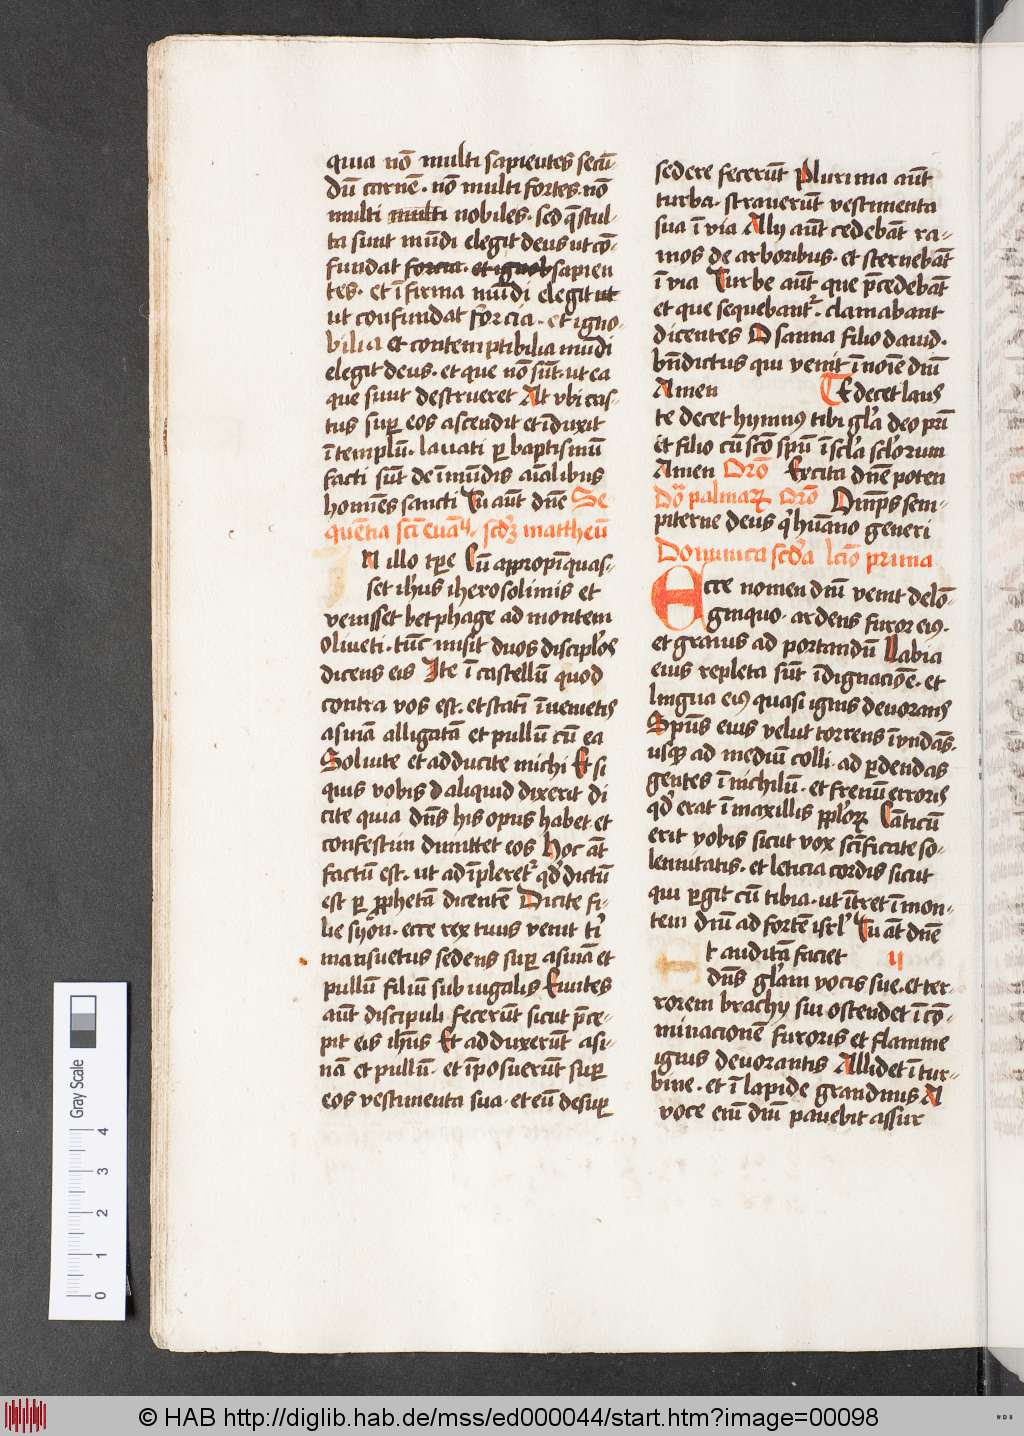 quia nō multi sapientes secū-
dū carnē. nō multi fortes. nō
multi multi nobiles. sed q̄ stul-
ta sunt mūdi elegit deus ut cō-
fundat forcia. et ignob sapien
tes. et īfirma mūdi elegit ut
ut confundat forcia. et igno-
bilia et contemptibilia mūdi
elegit deus. et que nō sūt. ut ea
que sunt destrueret At vbi cas-
tus suꝑ eos ascendit et īduxit
ī templū. lauati ꝑ baptismū
facti sūt de īmūdis aīalibus
homīes sancti Tu aūt dn̄e Se
quētia sc̄i euāꝗ. scdʒ mattheū
In illo tꝑe Cū appropīquas-
set ih'us iherosolimis et
venisset betphage ad montem
Oliueti. tūc misit duos discipl'os
dicens eis Ite ī castellū quod
contra vos est. et statī īuenietis
asinā alligatā et pullū cū ea
Soluite et adducite michi Et si
quis vobis d aliquid dixerit di
cite quia dn̄s his opus habet. et
confestim dimittet eos Hoc āt
factū est. ut adīpleret' qd' dictū
est ꝑ ꝓphetā dicentē Dicite fi-
lie syōn. ecce rex tuus venit t'
mansuetus sedens suꝑ asinā et
pullū filiū subiugalis Euntes
aūt discipuli fecerūt sicut p̄ce-
pit eis ih̄us Et adduxerūt asi-
nā et pullū. et īposuerūt suꝑ
eos vestimenta sua. et eū desuꝑ
sedere fecerūt Plurima aūt
turba. strauerūt vestimenta
sua ī via Alij aūt cedebāt ra-
mos de arboribus. et sternebāt
ī via Turbe aūt que p̄cedebāt
et que sequebant'. clamabant
dicentes Osanna filio dauid.
bn̄dictus qui venit ī noīe dn̄i
Amen Te decet laus
te decet hymnꝰ tibi gl'a deo pri
et filio cū sc̄o spū ī sc'la sc'lorum
Amen Orō Excita dn̄e poten
Dō palmaꝝ Orō Omīps sem-
piterne deus q' hūano generi
Dominica scd'a lc̄io prima
Ecce nomen dn̄i venit de lō-
ginquo. ardens furor eiꝰ.
et grauis ad portandū Labia
eius repleta sūt īdignaciōe. et
lingua eiꝰ quasi ignis deuorans
Spūs eius velut torrens īvndās.
usqꝫ ad mediū colli. ad ꝑdendas
gentes ī nichilū. et frenū erroris
qd' erat ī maxillis ppl'oꝝ Cāticū
erit vobis sicut vox sc̄ificate so-
lennitatis. et leticia cordis sicut
qui ꝑgit cū tibia. ut ītret ī mon-
tem dn̄i ad fortē isrl' Tu āt dn̄e
Et auditā faciet ij
dn̄s gl'am vocis sue. et ter-
rorem brachij sui ostendet ī cō-
minacionē furoris et flamme
ignis deuorantis Allidet ī tur-
bine. et ī lapide grandinis A
voce enī dn̄i pauebit assur
Gray Scale
0 1 2 3 4
© HAB http://diglib.hab.de/mss/ed000044/start.htm?image=00098